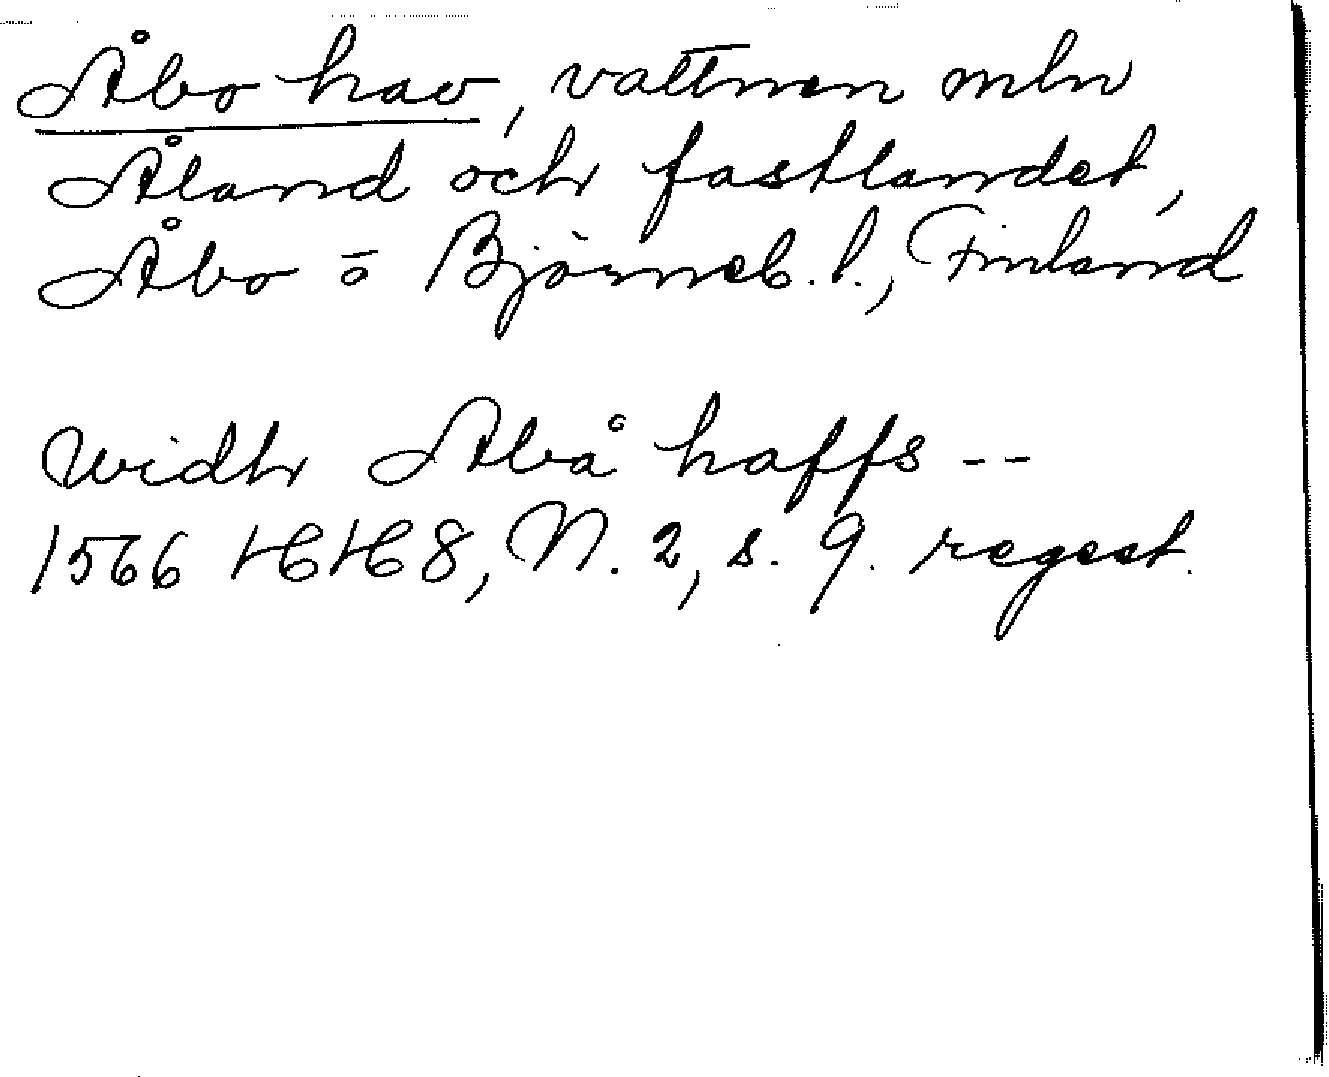 Åbo hav, vattnen mln
Åland och fastlandet,
Åbo o Björneb. l., Finland
Widh Abå haffs --
1566 HH 8, N. 2, s. 9. regest.